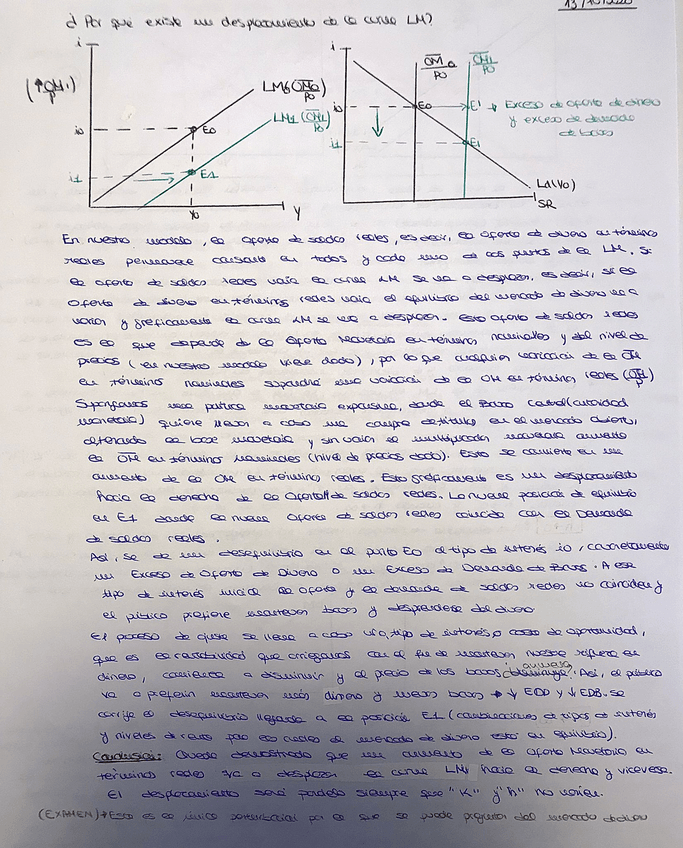 13/10/2020
¿Por qué existe un desplazamiento de la curva LM?
i
(↑OM1/P)
LM0 (OM0/P0)
LM1 (OM1/P0)
i0
E0
i1
E1
Y0
Y
i
OM0/P0
OM1/P0
i0
E0
E'
→ Exceso de oferta de dinero
y exceso de demanda
de bonos
i1
E1
Ld(Y0)
SR
En nuestro modelo, la oferta de saldos reales, es decir, la oferta de dinero en términos
reales permanece constante en todos y cada uno de los puntos de la LM. Si
la oferta de saldos reales varía la curva LM se va a desplazar, es decir, si la
oferta de dinero en términos reales varía el equilibrio del mercado de dinero va a
variar y gráficamente la curva LM se va a desplazar. Esta oferta de saldos reales
es la que depende de la Oferta Monetaria en términos nominales y del nivel de
precios (en nuestro modelo viene dado), por lo que cualquier variación de la OM
en términos nominales supondrá una variación de la OM en términos reales (OM/P)
Supongamos una política monetaria expansiva, donde el Banco Central (autoridad
monetaria) quiere llevar a cabo una compra de títulos en el mercado abierto,
la base monetaria y sin variar el multiplicador monetario aumenta
la OM en términos nominales (nivel de precios dado). Esto se convierte en un
aumento de la OM en términos reales. Esto gráficamente es un desplazamiento
hacia la derecha de la OfertaM de saldos reales. La nueva posición de equilibrio
en E1 donde la nueva oferta de saldos reales coincide con la Demanda
de saldos reales.
Así, se da un desequilibrio en el punto E0 al tipo de interés i0, concretamente
un Exceso de Oferta de Dinero o un Exceso de Demanda de Bonos. A ese
tipo de interés inicial la oferta y la demanda de saldos reales no coinciden y
el público prefiere mantener bonos y desprenderse del dinero
El proceso de ajuste se lleva a cabo vía tipo de interés, o coste de oportunidad,
que es la rentabilidad que con el fin de mantener nuestra riqueza en
dinero, comienza a disminuir y el precio de los bonos aumenta. Así, el público
va a preferir mantener más dinero y menos bonos → ↓ EOD y ↓ EDB. Se
corrige el desequilibrio llegando a la posición E1 (combinaciones de tipos de interés
y niveles de renta para los cuales el mercado de dinero está en equilibrio).
Conclusión: Queda demostrado que un aumento de la Oferta Monetaria en
términos reales va a desplazar la curva LM hacia la derecha y viceversa.
El desplazamiento será paralelo siempre que "K" y "h" no varíen.
(EXAMEN) → Esta es la única perturbación por la que se puede preguntar del mercado dinero